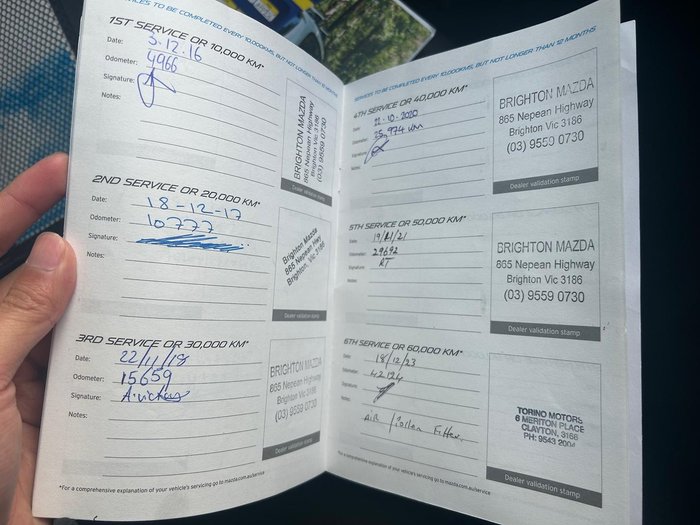 SERVICES TO BE COMPLETED EVERY 10,000KMS, BUT NOT LONGER THAN 12 MONTHS
1ST SERVICE OR 10,000 KM*
Date: 5.12.16
Odometer: 4966
Signature:
Notes:
BRIGHTON MAZDA
865 Nepean Highway
Brighton Vic 3186
(03) 9559 0730
Dealer validation stamp
2ND SERVICE OR 20,000 KM*
Date: 18-12-17
Odometer: 10777
Signature:
Notes:
Brighton Mazda
865 Nepean Hwy
Brighton, Vic 3186
Dealer validation stamp
3RD SERVICE OR 30,000 KM*
Date: 22/11/18
Odometer: 15659
Signature:
Notes:
BRIGHTON MAZDA
865 Nepean Highway
Brighton Vic 3186
(03) 9559 0730
Dealer validation stamp
*For a comprehensive explanation of your vehicle's servicing go to mazda.com.au/service
SERVICES TO BE COMPLETED EVERY 10,000KMS, BUT NOT LONGER THAN 12 MONTHS
4TH SERVICE OR 40,000 KM*
Date: 22.10.2020
Odometer: 25,974 km
Signature:
Notes:
BRIGHTON MAZDA
865 Nepean Highway
Brighton Vic 3186
(03) 9559 0730
Dealer validation stamp
5TH SERVICE OR 50,000 KM*
Date:
Odometer: 29692
Signature: RT
Notes:
BRIGHTON MAZDA
865 Nepean Highway
Brighton Vic 3186
(03) 9559 0730
Dealer validation stamp
6TH SERVICE OR 60,000 KM*
Date: 18/12/23
Odometer: 42124
Signature:
Notes: AIR / Pollen Filter
TORINO MOTORS
6 MERITON PLACE
CLAYTON, 3168
PH: 9543 2004
Dealer validation stamp
*For a comprehensive explanation of your vehicle's servicing go to mazda.com.au/service